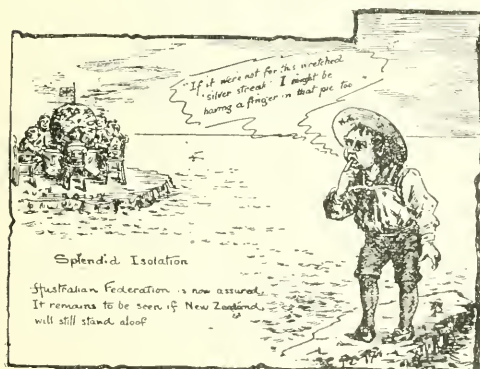 "If it were not for this wretched
'silver streak' I might be
having a finger in that pie too"
N.Z.
Splendid Isolation
Australian Federation is now assured.
It remains to be seen if New Zealand
will still stand aloof